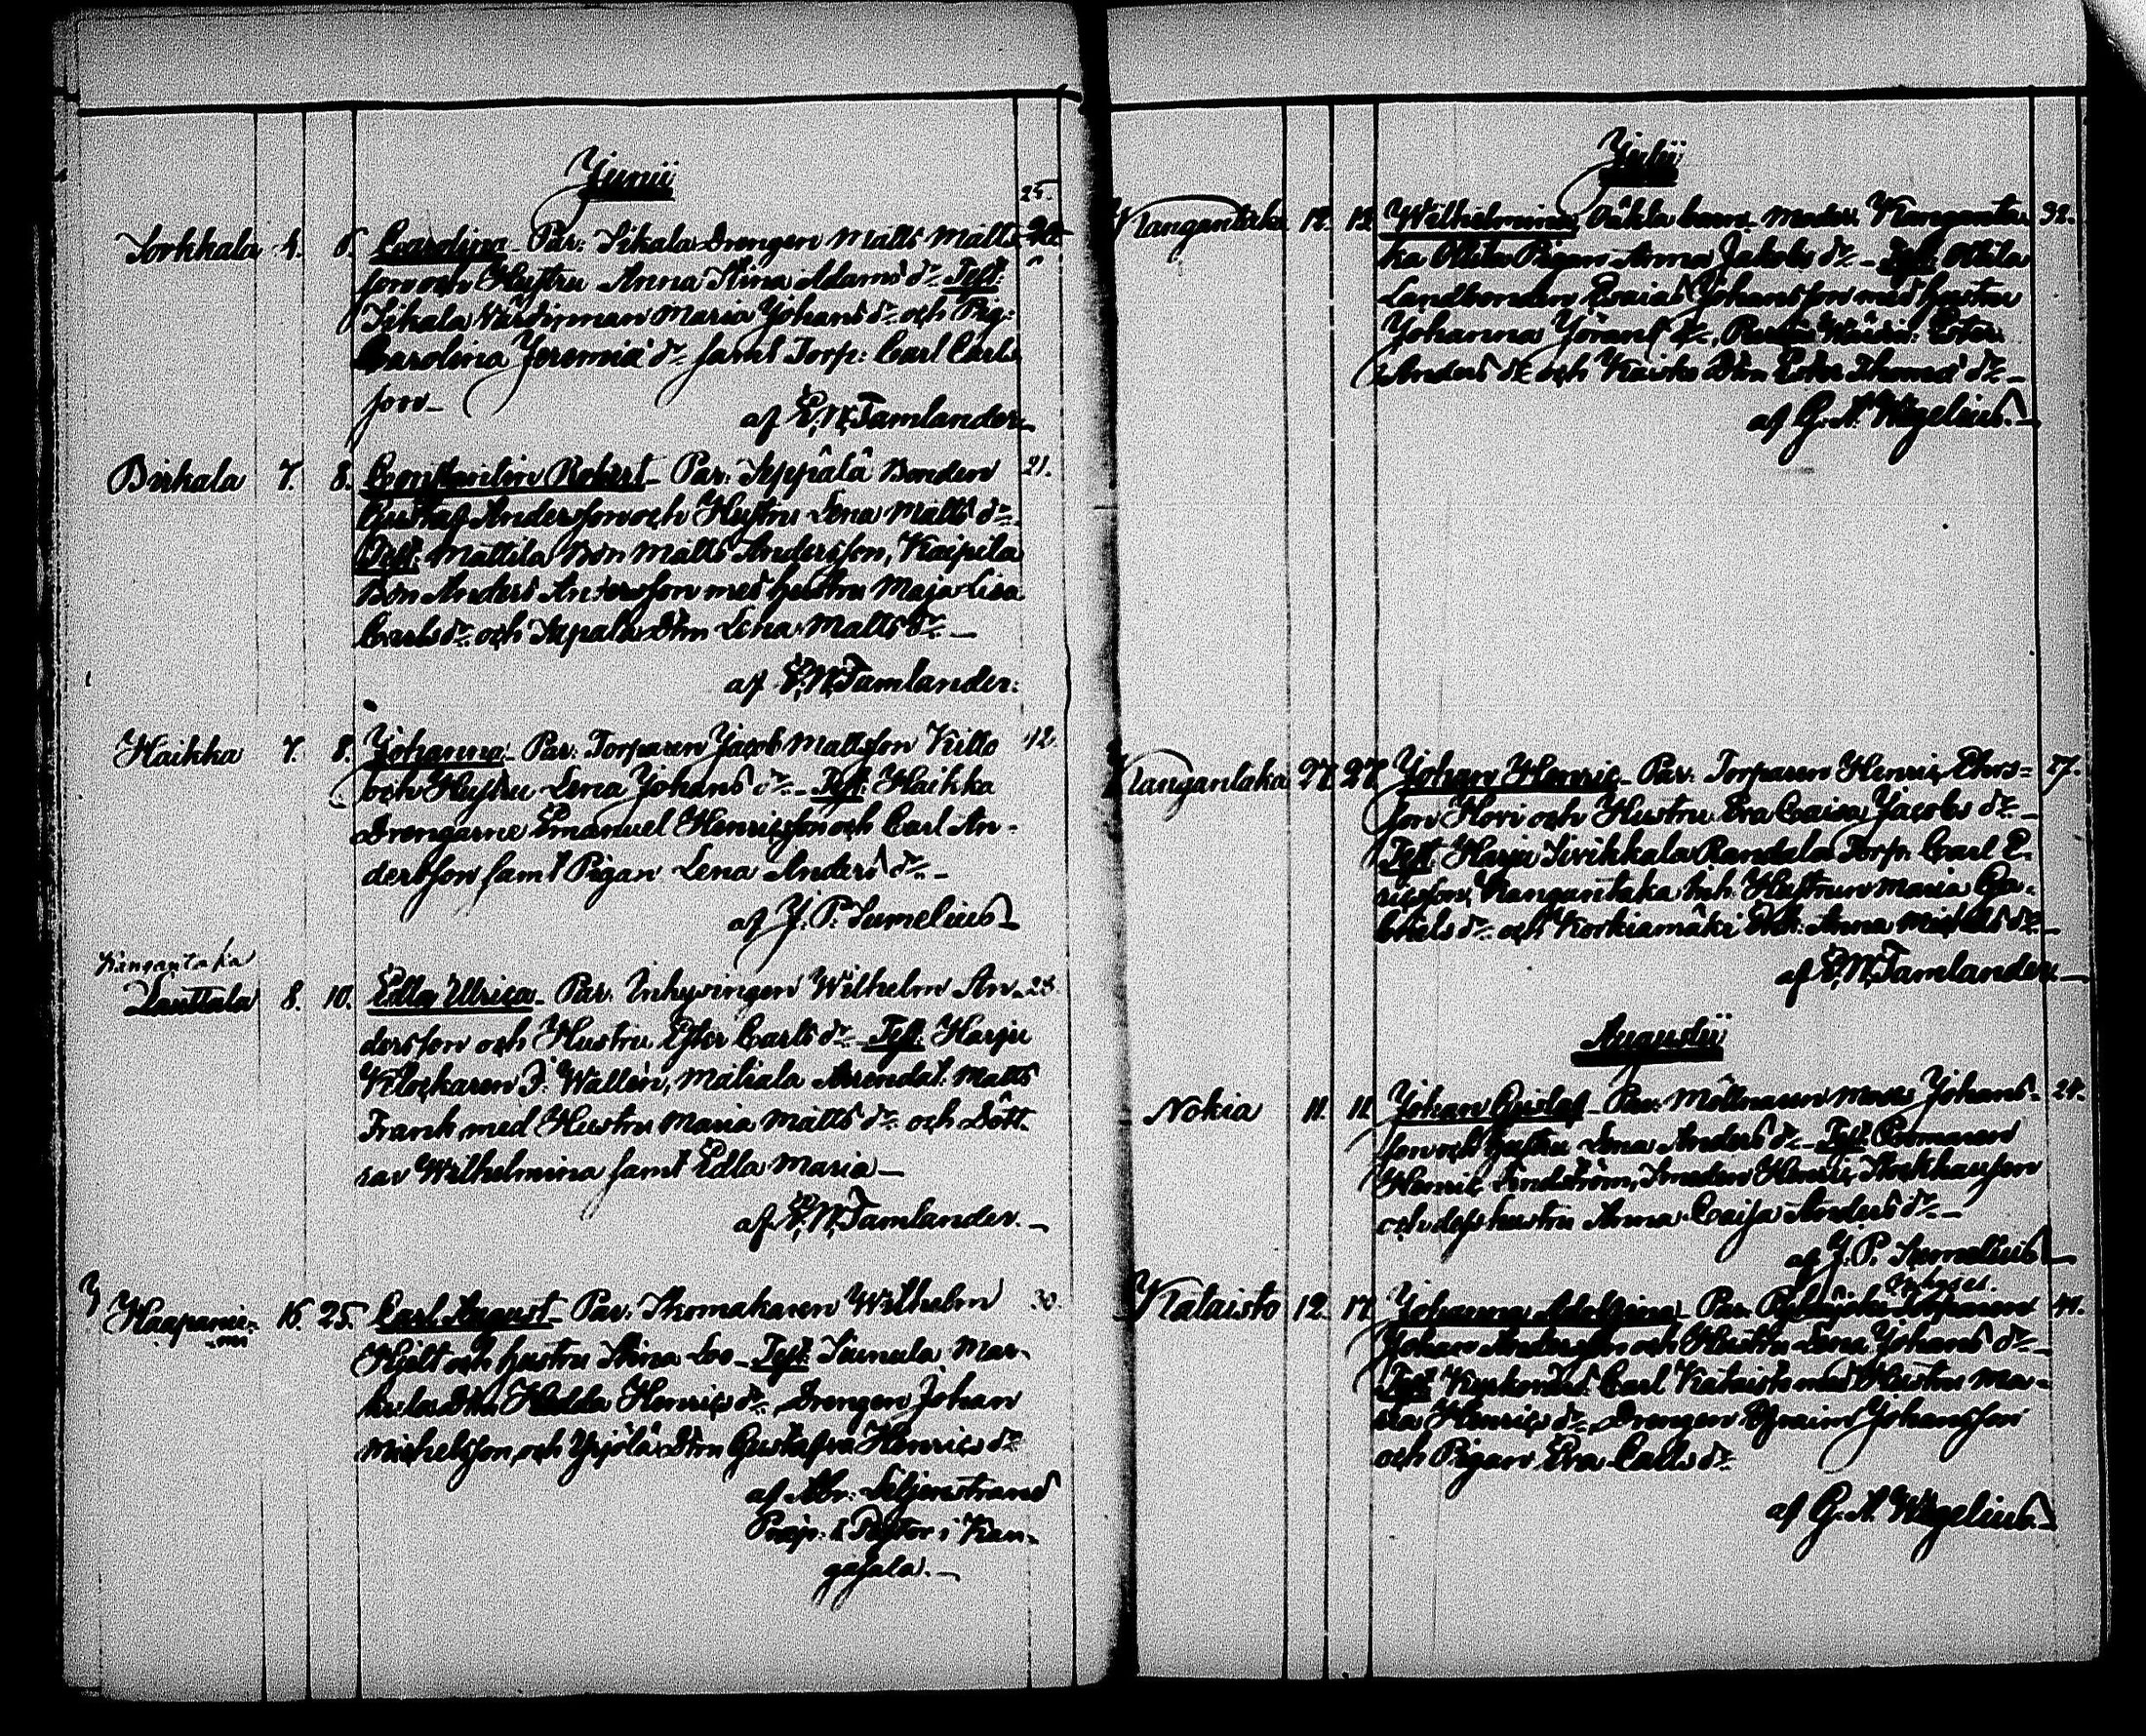 Junii
25.
Sorkkala 4. 6. Carolina - Par: Sikala Drengen Matts Matts
son och Hustru Anna Stina Adams dr. Test:
Sikala Wärdinnan Maria Johans dr. och Pig:
Carolina Jeremiæ dr. samt Torp: Carl Carls
son -
af E. W. Tamlander
Birkala 7. 8. Constantin Robert - Par: Seppälä Bonden 21.
Gustaf Andersson och Hustru Lena Matts dr.
Test: Mattila Bon Matts Andersson, Kaipila
Bon Anders Andersson med hustru Maja Lisa
Carls dr. och Sepälä Dtm Lena Matts dr. -
af E. W. Tamlander.
Haikka 7. 8. Johanna - Par: Torparen Jacob Mattsson Kitto 42.
och Hustru Lena Johans dr. - Test: Haikka
Drengarne Emanuel Henricsson och Carl An-
dersson samt Pigan Lena Anders dr. -
af J. P. Sumelius
Kangantaka
Lauttala 8. 10. Edla Ulrica - Par: Inhysingen Wilhelm An- 23.
dersson och Hustru Ester Carls dr. - Test: Harju
Klockaren J: Wallen, Matiala Arrendat: Matts
Frank med Hustru Maria Matts dr. och Dött-
rar Wilhelmina samt Edla Maria -
af E. W. Tamlander. -
Haapanie- 16. 25. Carl August - Par: Skomakaren Wilhelm 30.
mi
Hjelt och hustru Stina Loo - Test:
Hedda Henrics dr. Drengen Johan
Michelsson, och Yrjölä Dtm Gustafva Henrics dr.
af Abr: Liljenstrand
Prost & Pastor i Kan-
gasala. -
Julii
Kangantaka 12. 12. Wilhelmina, Oäkta barn - Moder: Kanganta- 32.
ka Pigan Anna Jakobs dr. - Test:
Landbonden Esaias Johansson med hustru
Johanna
Anders dr. och Kaisko Dtm Thomas dr. -
af G. A. Wegelius. -
Kangantaka 27. 27. Johan Henric - Par: Torparen Henric Ehrs- 27.
son Hovi och Hustru Eva Caisa Jacobs dr. -
Test: Harju Sivikkala Randala Torp. Carl E-
ricsson, Kangantaka Inh. Hustrun Maria Ga-
briels dr. och Korkiamäki Anna Michels dr. -
af E. W. Tamlander -
Augustii
Nokia 11. 11. Johan Gustaf - Par: Möllnaren Johans- 24.
son och hustru Lena Anders dr. - Test:
Henric Lindström, Smeden Henric
och dess hustru Anna Caisa Anders dr. -
af J. P. Sumelius
Kataisto 12. 17. Johanna Adolfina - Par: 44.
Johan Andersson och Hustru Lena Johans dr. -
Test: Kyrkovärd: Carl Kataisto med Hustru Ma-
ria Henrics dr. Drengen Johansson
och Pigan Eva Carls dr.
af G. A. Wegelius. -